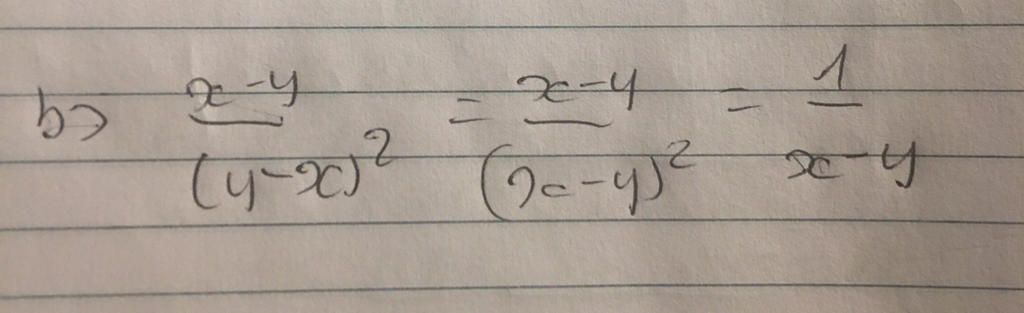 b> x-y/(y-x)² = x-y/(x-y)² = 1/x-y